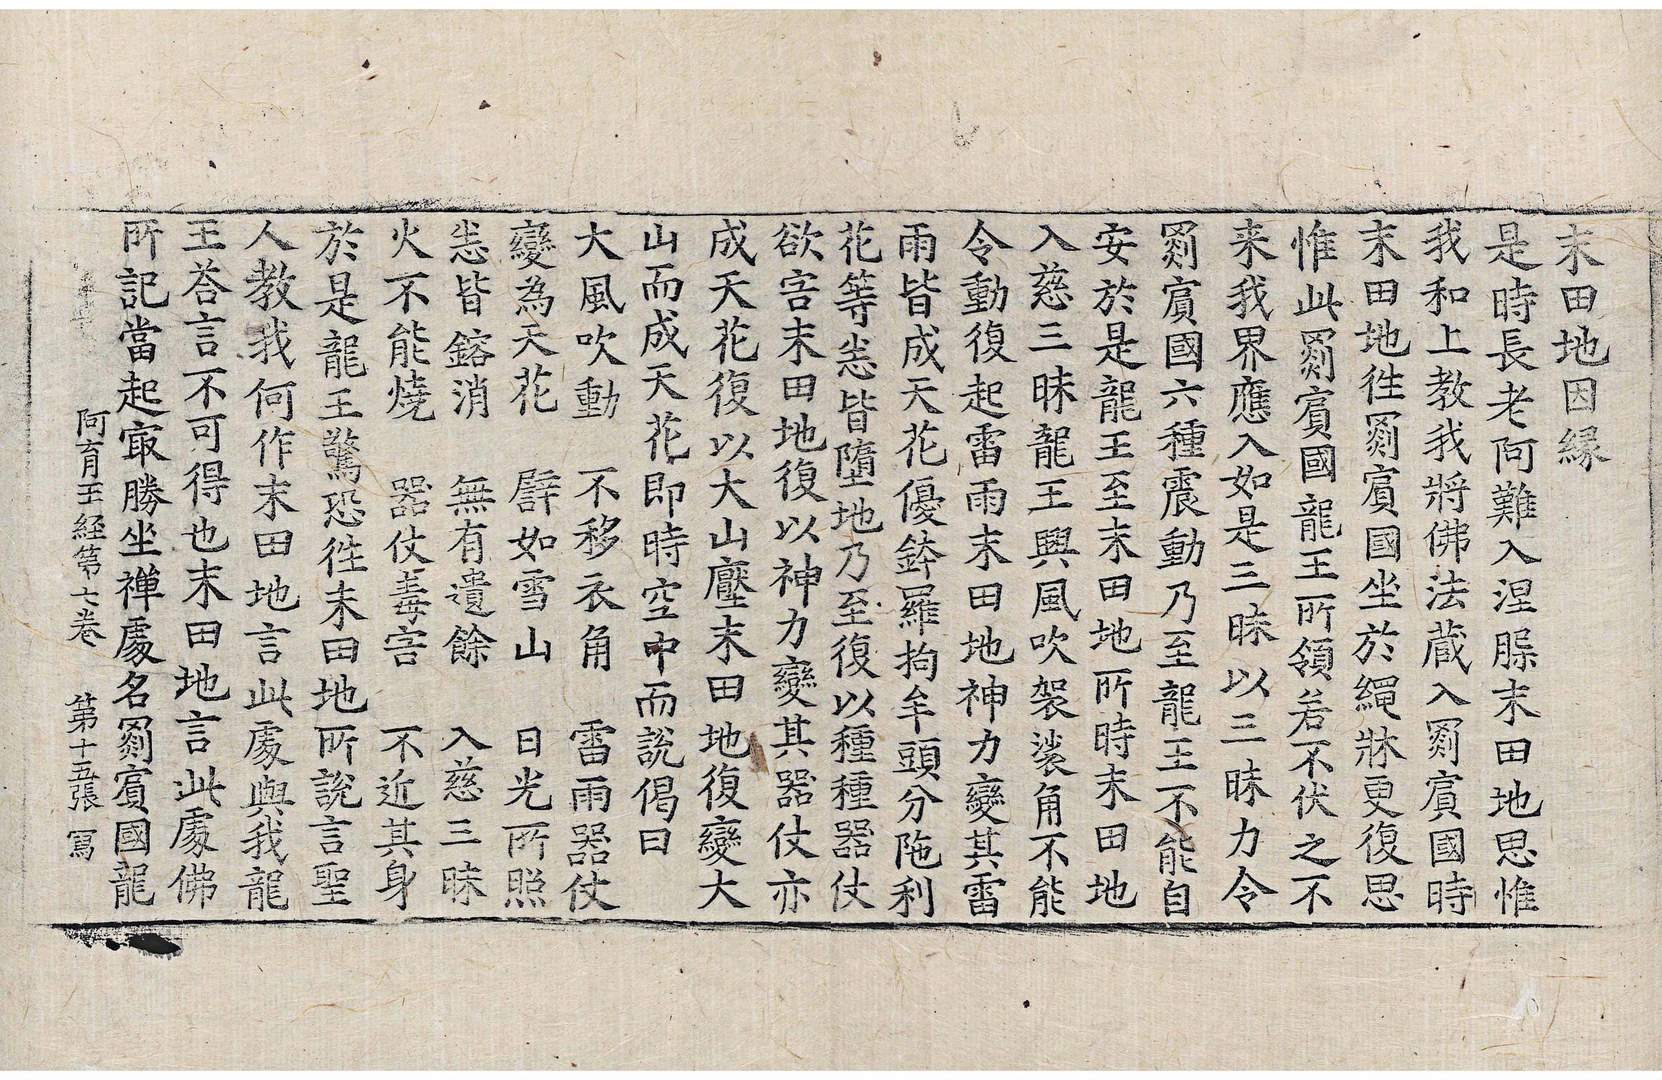 末田地因縁
是時長老阿難入涅槃末田地思惟
我和上教我將佛法蔵入罽賓國時
末田地徃罽賓國坐於繩牀更復思
惟此罽賓國龍王所領若不伏之不
来我界應入如是三昧以三昧力令
罽賓國六種震動乃至龍王不能自
安於是龍王至末田地所時末田地
入慈三昧龍王興風吹袈裟角不能
令動復起雷雨末田地神力變其雷
雨皆成天花優鉢羅拘牟頭分陁利
花等恙皆墮地乃至復以種種器仗
欲害末田地復以神力變其器仗亦
成天花復以大山壓末田地復變大
山而成天花即時空中而說偈曰
大風吹動　不移衣角　雷雨器仗
變為天花　譬如雪山　日光所照
恙皆鎔消　無有遺餘　入慈三昧
火不能燒　器仗毒害　不近其身
於是龍王驚恐徃末田地所說言聖
人教我何作末田地言此處與我龍
王荅言不可得也末田地言此處佛
所記當起㝡勝坐禪處名罽賓國龍
阿育王經第七卷　第十五張　寫